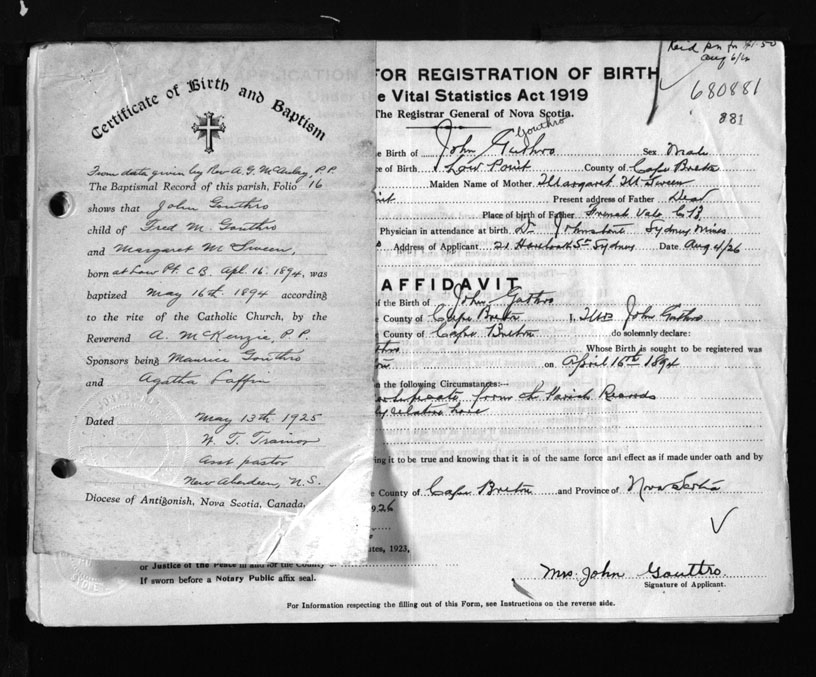 Certificate of Birth and Baptism
From data given by Rev A. G. McAulay, P.P.
The Baptismal Record of this parish, Folio 16
shows that John Gouthro
child of Fred M. Gouthro
and Margaret McSween,
born at Low Pt. C.B. Apl. 16, 1894, was
baptized May 16th 1894 according
to the rite of the Catholic Church, by the
Reverend A. McKenzie, P.P.
Sponsors being Maurice Gouthro
and Agatha Laffin
Dated May 13th 1925
W. T. Trainor
Asst pastor
New Aberdeen, N.S.
Diocese of Antigonish, Nova Scotia, Canada.
Aug 6/26
680881
881
FOR REGISTRATION OF BIRTH
e Vital Statistics Act 1919
The Registrar General of Nova Scotia.
Gouthro
e Birth of John Guthro Sex Male
e of Birth Low Point County of Cape Breton
Maiden Name of Mother Margaret McSween
Present address of Father Dead
Place of birth of Father French Vale C B
Physician in attendance at birth Dr Johnstone Sydney Mines
Address of Applicant St Sydney Date Aug 4/26
AFFIDAVIT
f the Birth of John Guthro
e County of Cape Breton I, Mrs John Guthro
e County of Cape Breton do solemnly declare:
Whose Birth is sought to be registered was
on April 16th 1894
n the following Circumstances:—
from the Parish Records
ing it to be true and knowing that it is of the same force and effect as if made under oath and by
e County of Cape Breton and Province of Nova Scotia
1926
utes, 1923,
or Justice of the Peace in and for the County of
If sworn before a Notary Public affix seal.
Mrs. John Gouthro
Signature of Applicant.
For Information respecting the filling out of this Form, see Instructions on the reverse side.